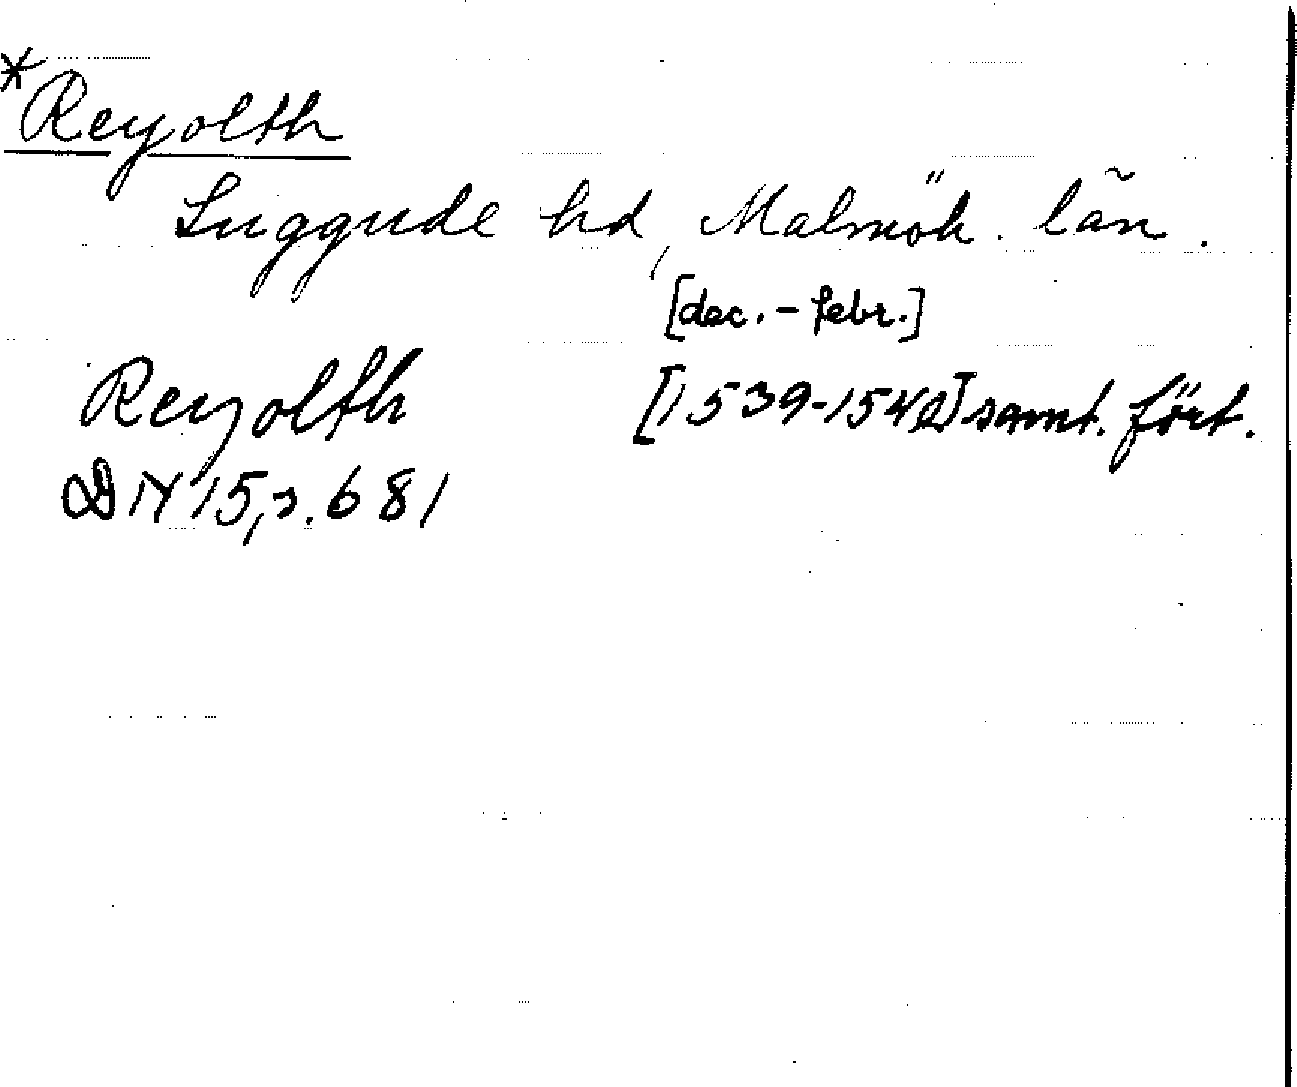 *Reyolth
Luggude hd, Malmöh. län.
[dec. - febr.]
Reyolth [1539-1542] samt. fört.
DN 15, s. 681